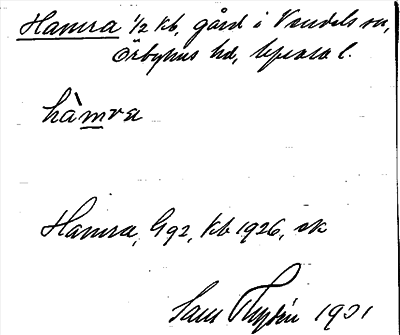 Hamra 1/2 kb, gård i Vendels sn,
Örbyhus hd, Uppsala l.
hàmra
Hamra, G 92, kb 1926, ek
Sam 1901